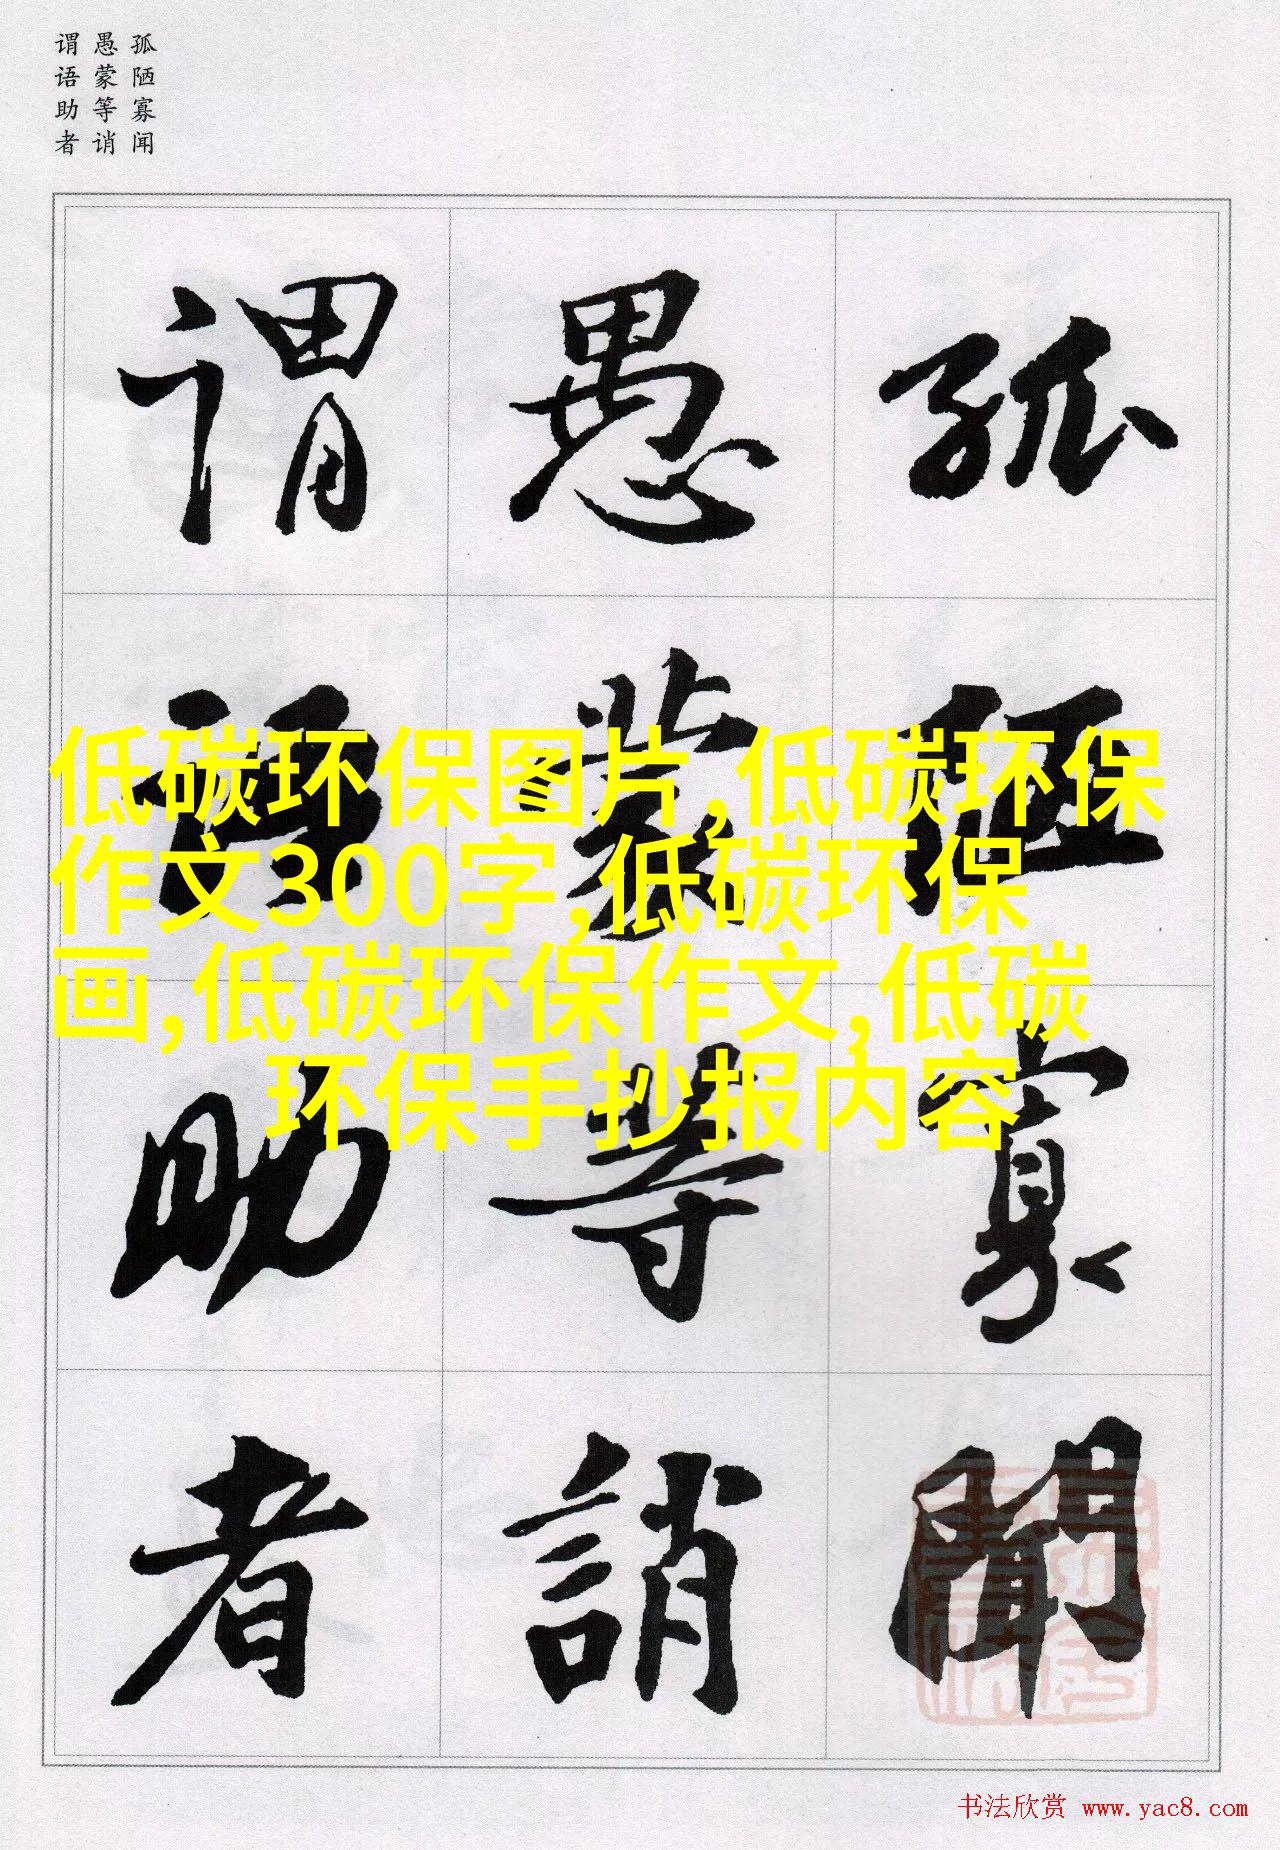 孤陋寡闻
愚蒙等诮
谓语助者
孤陋寡闻
愚蒙等誚
谓语助者
低碳环保图片,低碳环保
作文300字,低碳环保
画,低碳环保作文,低碳
环保手抄报内容
书法欣赏 www.yac8.com